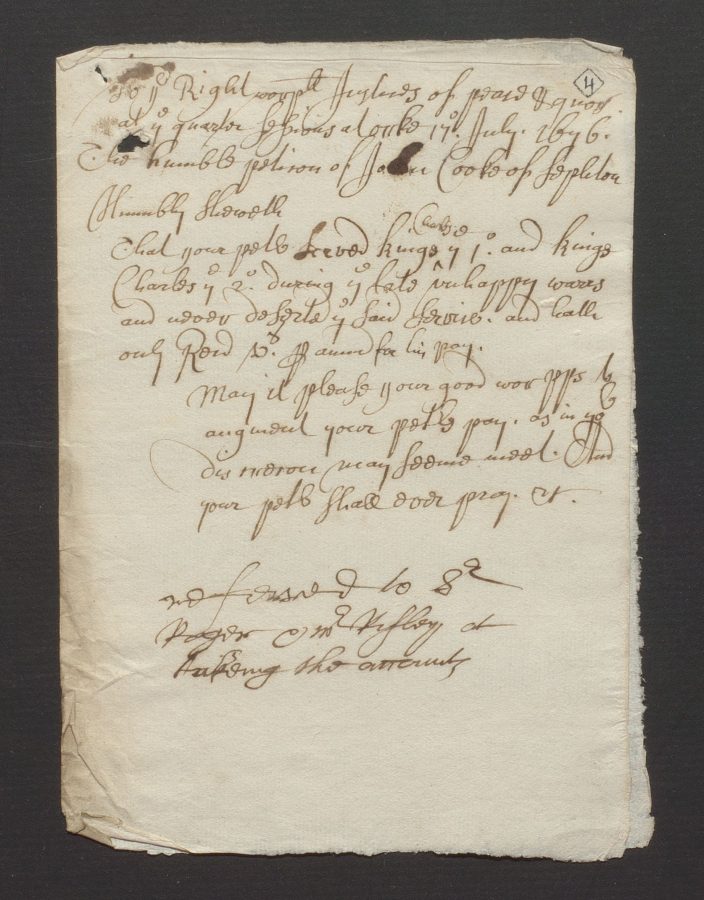 4
To yᵉ Right worpˡˡ Justices of peace & quor
at yᵉ quarter sessions at 17ᵒ. July. 1676.
The humble petison of John Cooke of Sephton
Humbly sheweth
That your petʳ served kinge Charles yᵉ 1ᵒ. and kinge
Charles yᵉ 2ᵒ. during yᵉ late vnhappy warrs
and never deserte yᵉ said servis. and hath
only Recd Vˢ. p annū for his pay.
May it please your good worpps to
augment your petʳˢ pay. as in yoʳ
discrecon may seeme meet. And
your petʳ shall ever pray. &c.
referred to Sʳ
Roger & mʳ Risley at
takeing the accounts